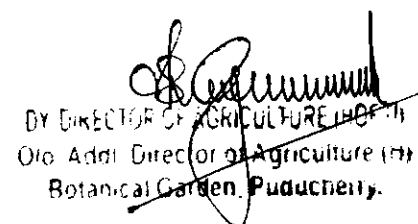 DY DIRECTOR OF AGRICULTURE
O/o Addl Director of Agriculture (H)
Botanical Garden, Puducherry.